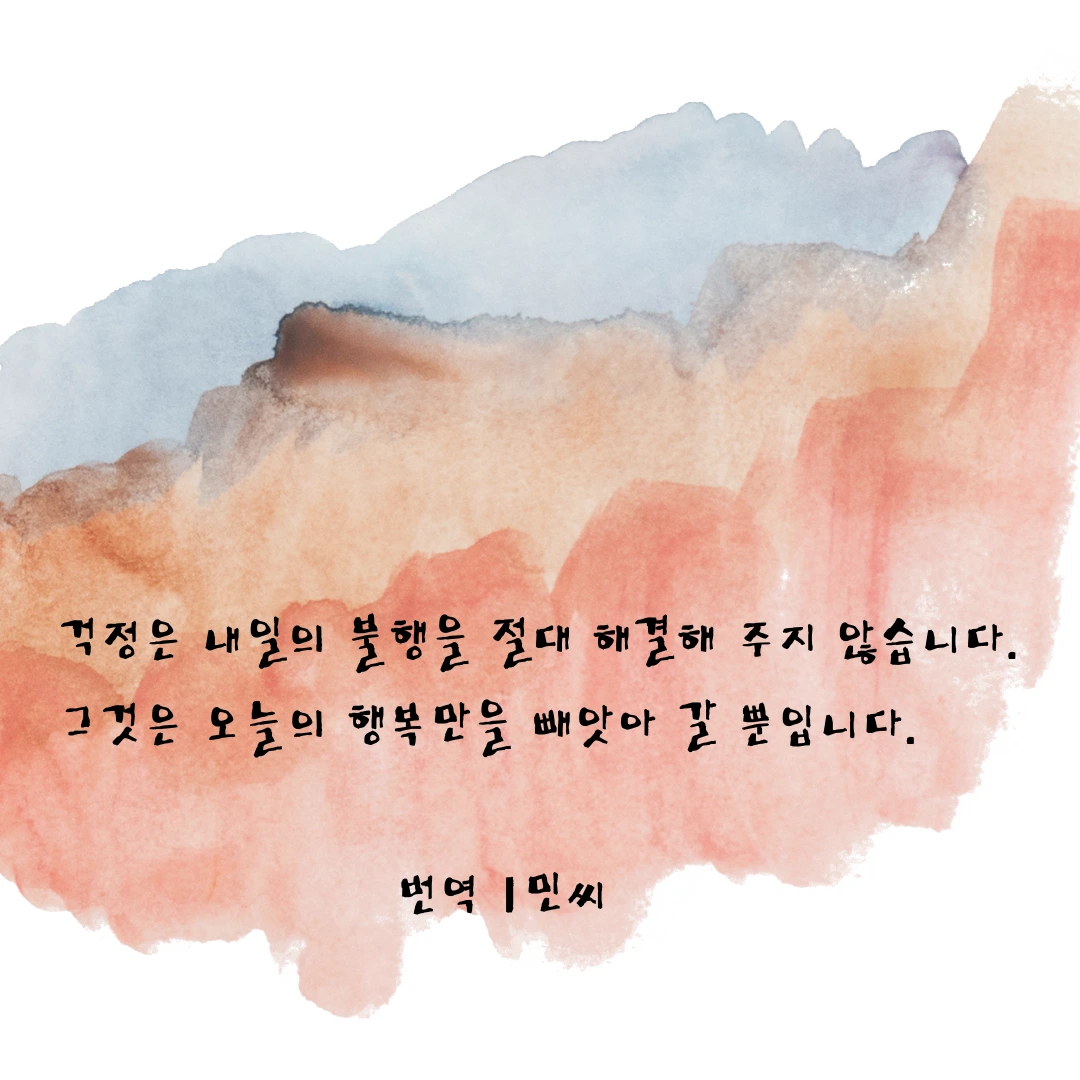 걱정은 내일의 불행을 절대 해결해 주지 않습니다.
그것은 오늘의 행복만을 빼앗아 갈 뿐입니다.
번역 | 민씨